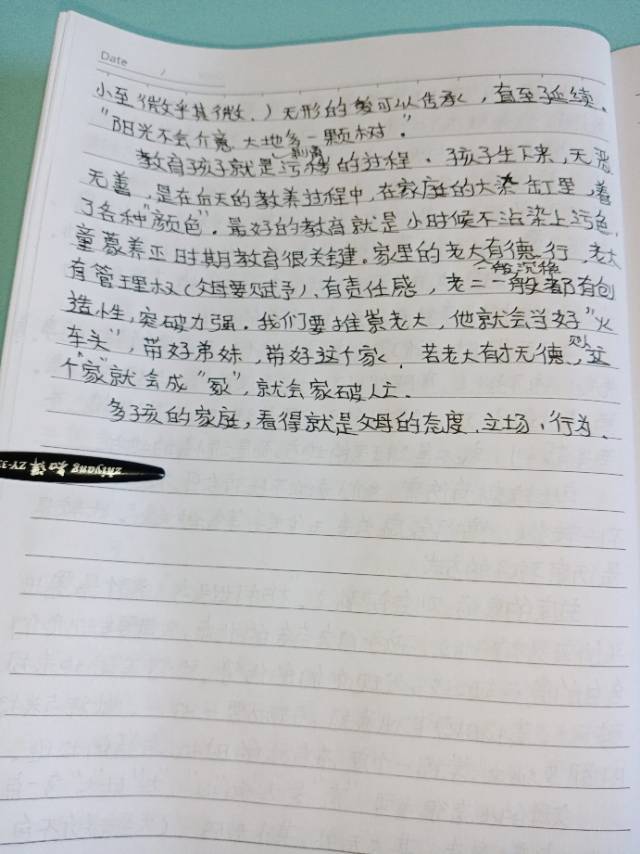 Date /
小至(微乎其微、)无形的爱可以传承，直至延续。
"阳光不会介意大地多一颗树。"
教育孩子就是污秽的过程。孩子生下来，无恶
无善，是在后天的教养过程中，在家庭的大染缸里，着
了各种"颜色"。最好的教育就是小时候不沾染上污色，
童蒙养正时期教育很关键。家里的老大有德行，老大
有管理权(父母要赋予)、有责任感，老二一般沉稳 老三一般都有创
造性，突破力强。我们要推崇老大，他就会当好"火
车头"，带好弟妹，带好这个家。若老大有才无德，则这
个"家"就会成"冢"，就会家破人亡。
多子孩的家庭，看得就是父母的态度、立场、行为。
zhiyang 知洋 ZY-33